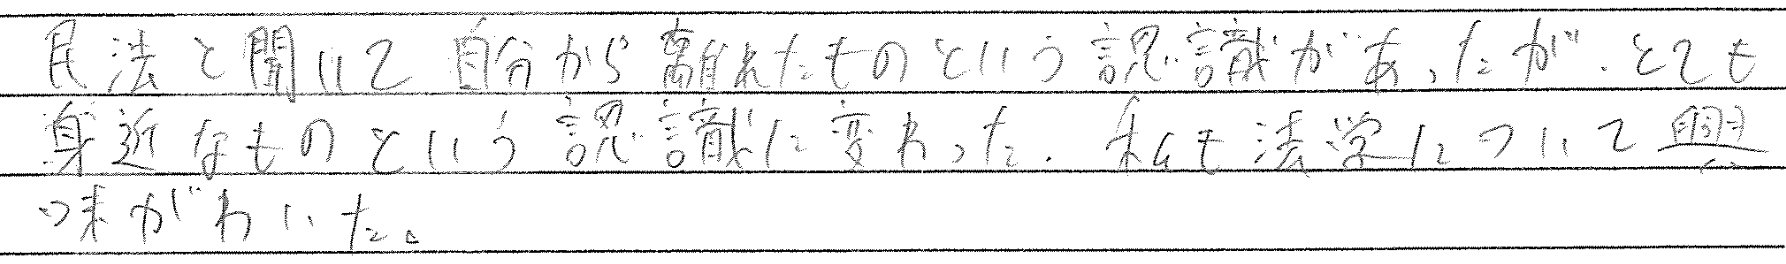 民法と聞いて自分から離れたものという認識があったが、とても
身近なものという認識に変わった。私も法学について興
味がわいた。